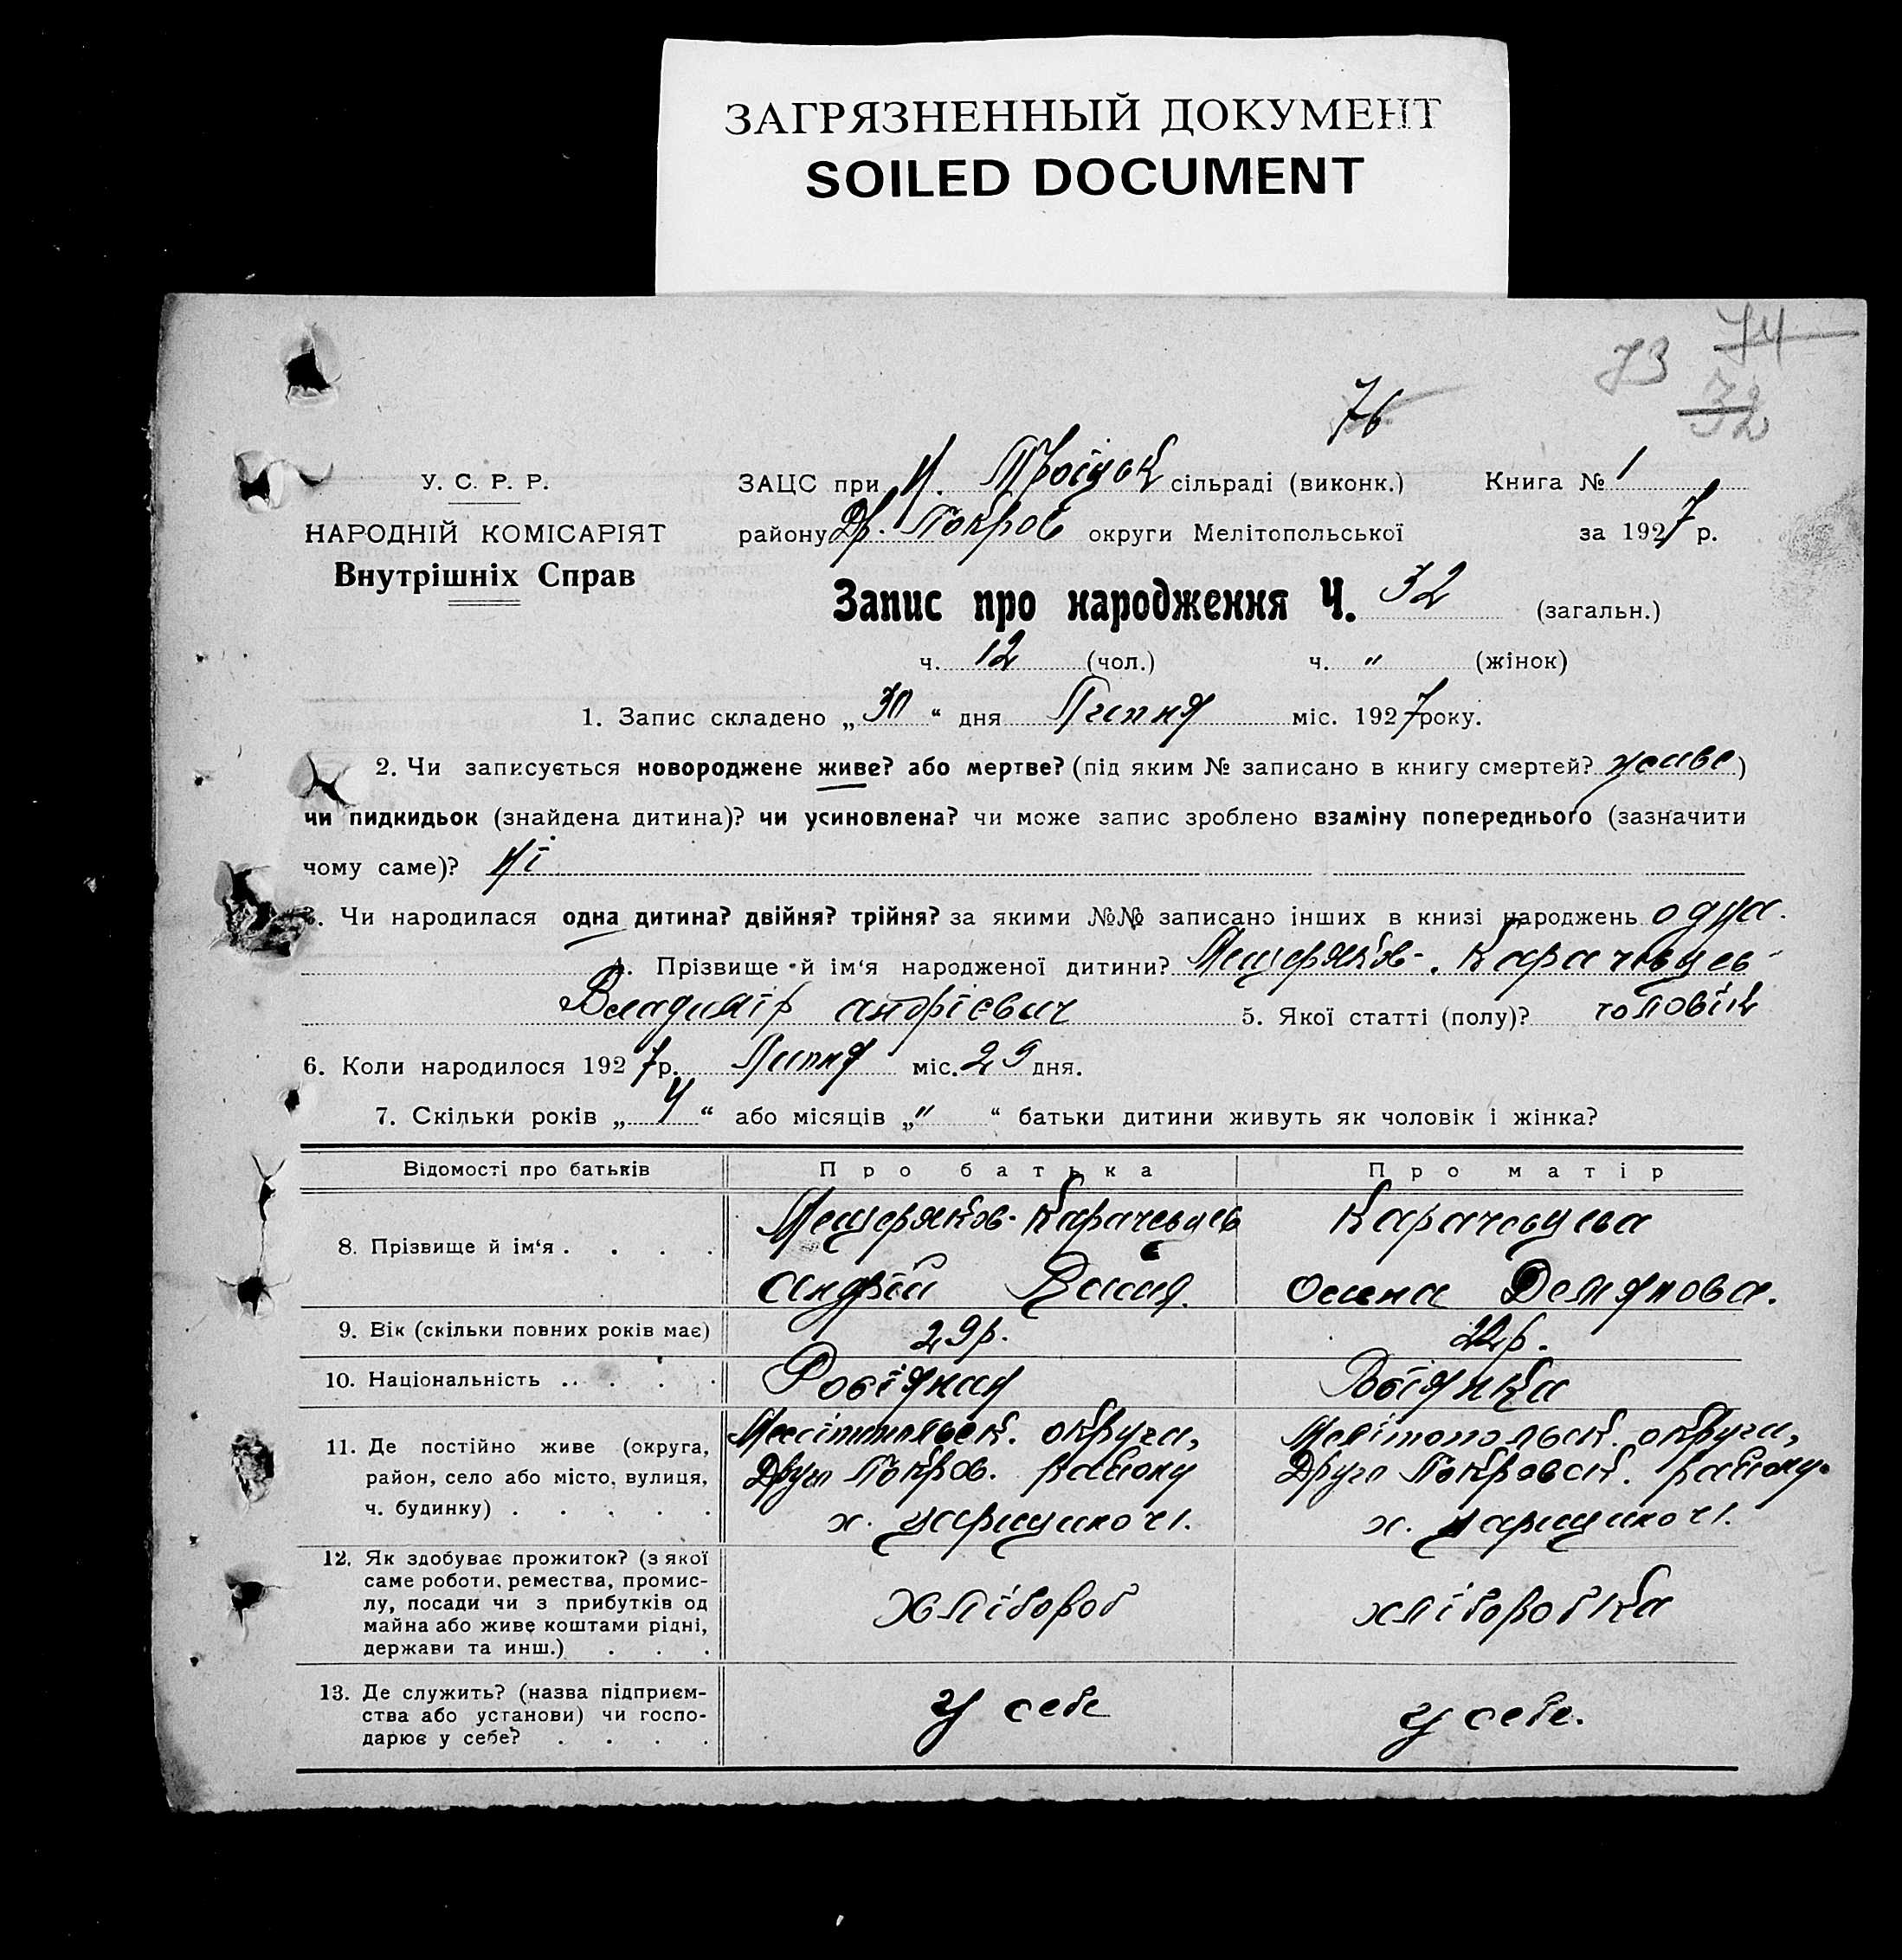 ЗАГРЯЗНЕННЫЙ ДОКУМЕНТ
SOILED DOCUMENT
74
73
32
76
У. С. Р. Р.
НАРОДНІЙ КОМІСАРІЯТ
Внутрішніх Справ
ЗАЦС при Н. Троіцьк сільраді (виконк.) Книга № 1
району Др. Покров округи Мелітопольської за 1927 р.
Запис про народження Ч. 32 (загальн.)
ч. 12 (чол.) ч. " (жінок)
1. Запис складено „30“ дня Липня міс. 1927 року.
2. Чи записується новороджене живе? або мертве? (під яким № записано в книгу смертей? живе)
чи пидкидьок (знайдена дитина)? чи усиновлена? чи може запис зроблено взаміну попереднього (зазначити
чому саме)? Ні
3. Чи народилася одна дитина? двійня? трійня? за якими №№ записано інших в книзі народжень одна.
4. Прізвище й ім‘я народженої дитини? Мещеряков-Карачевцев
Владимір Андрієвич 5. Якої статті (полу)? чоловік
6. Коли народилося 1927 р. Липня міс. 29 дня.
7. Скільки років „4“ або місяців „"“ батьки дитини живуть як чоловік і жінка?
Відомості про батьків Про батька Про матір
8. Прізвище й ім‘я . . . . Мещеряков-Карачевцев Карачевцева
Андрій Васил. Олена Демянова.
9. Вік (скільки повних років має) 29 р. 22 р.
10. Національність . . . . Росіянин Росіянка
11. Де постійно живе (округа, район, село або місто, вулиця, ч. будинку) . . . . .
Мелітопольск. округи, Мелітопольск. округи,
Друго Покров. району Друго Покровск. району
х. х.
12. Як здобуває прожиток? (з якої
саме роботи, ремества, промис-
лу, посади чи з прибутків од
майна або живе коштами рідні,
держави та инш.) . . .
Хлібороб хлоборобка
13. Де служить? (назва підприєм-
ства або установи) чи госпо-
дарює у себе? . . . .
У себе У себе.